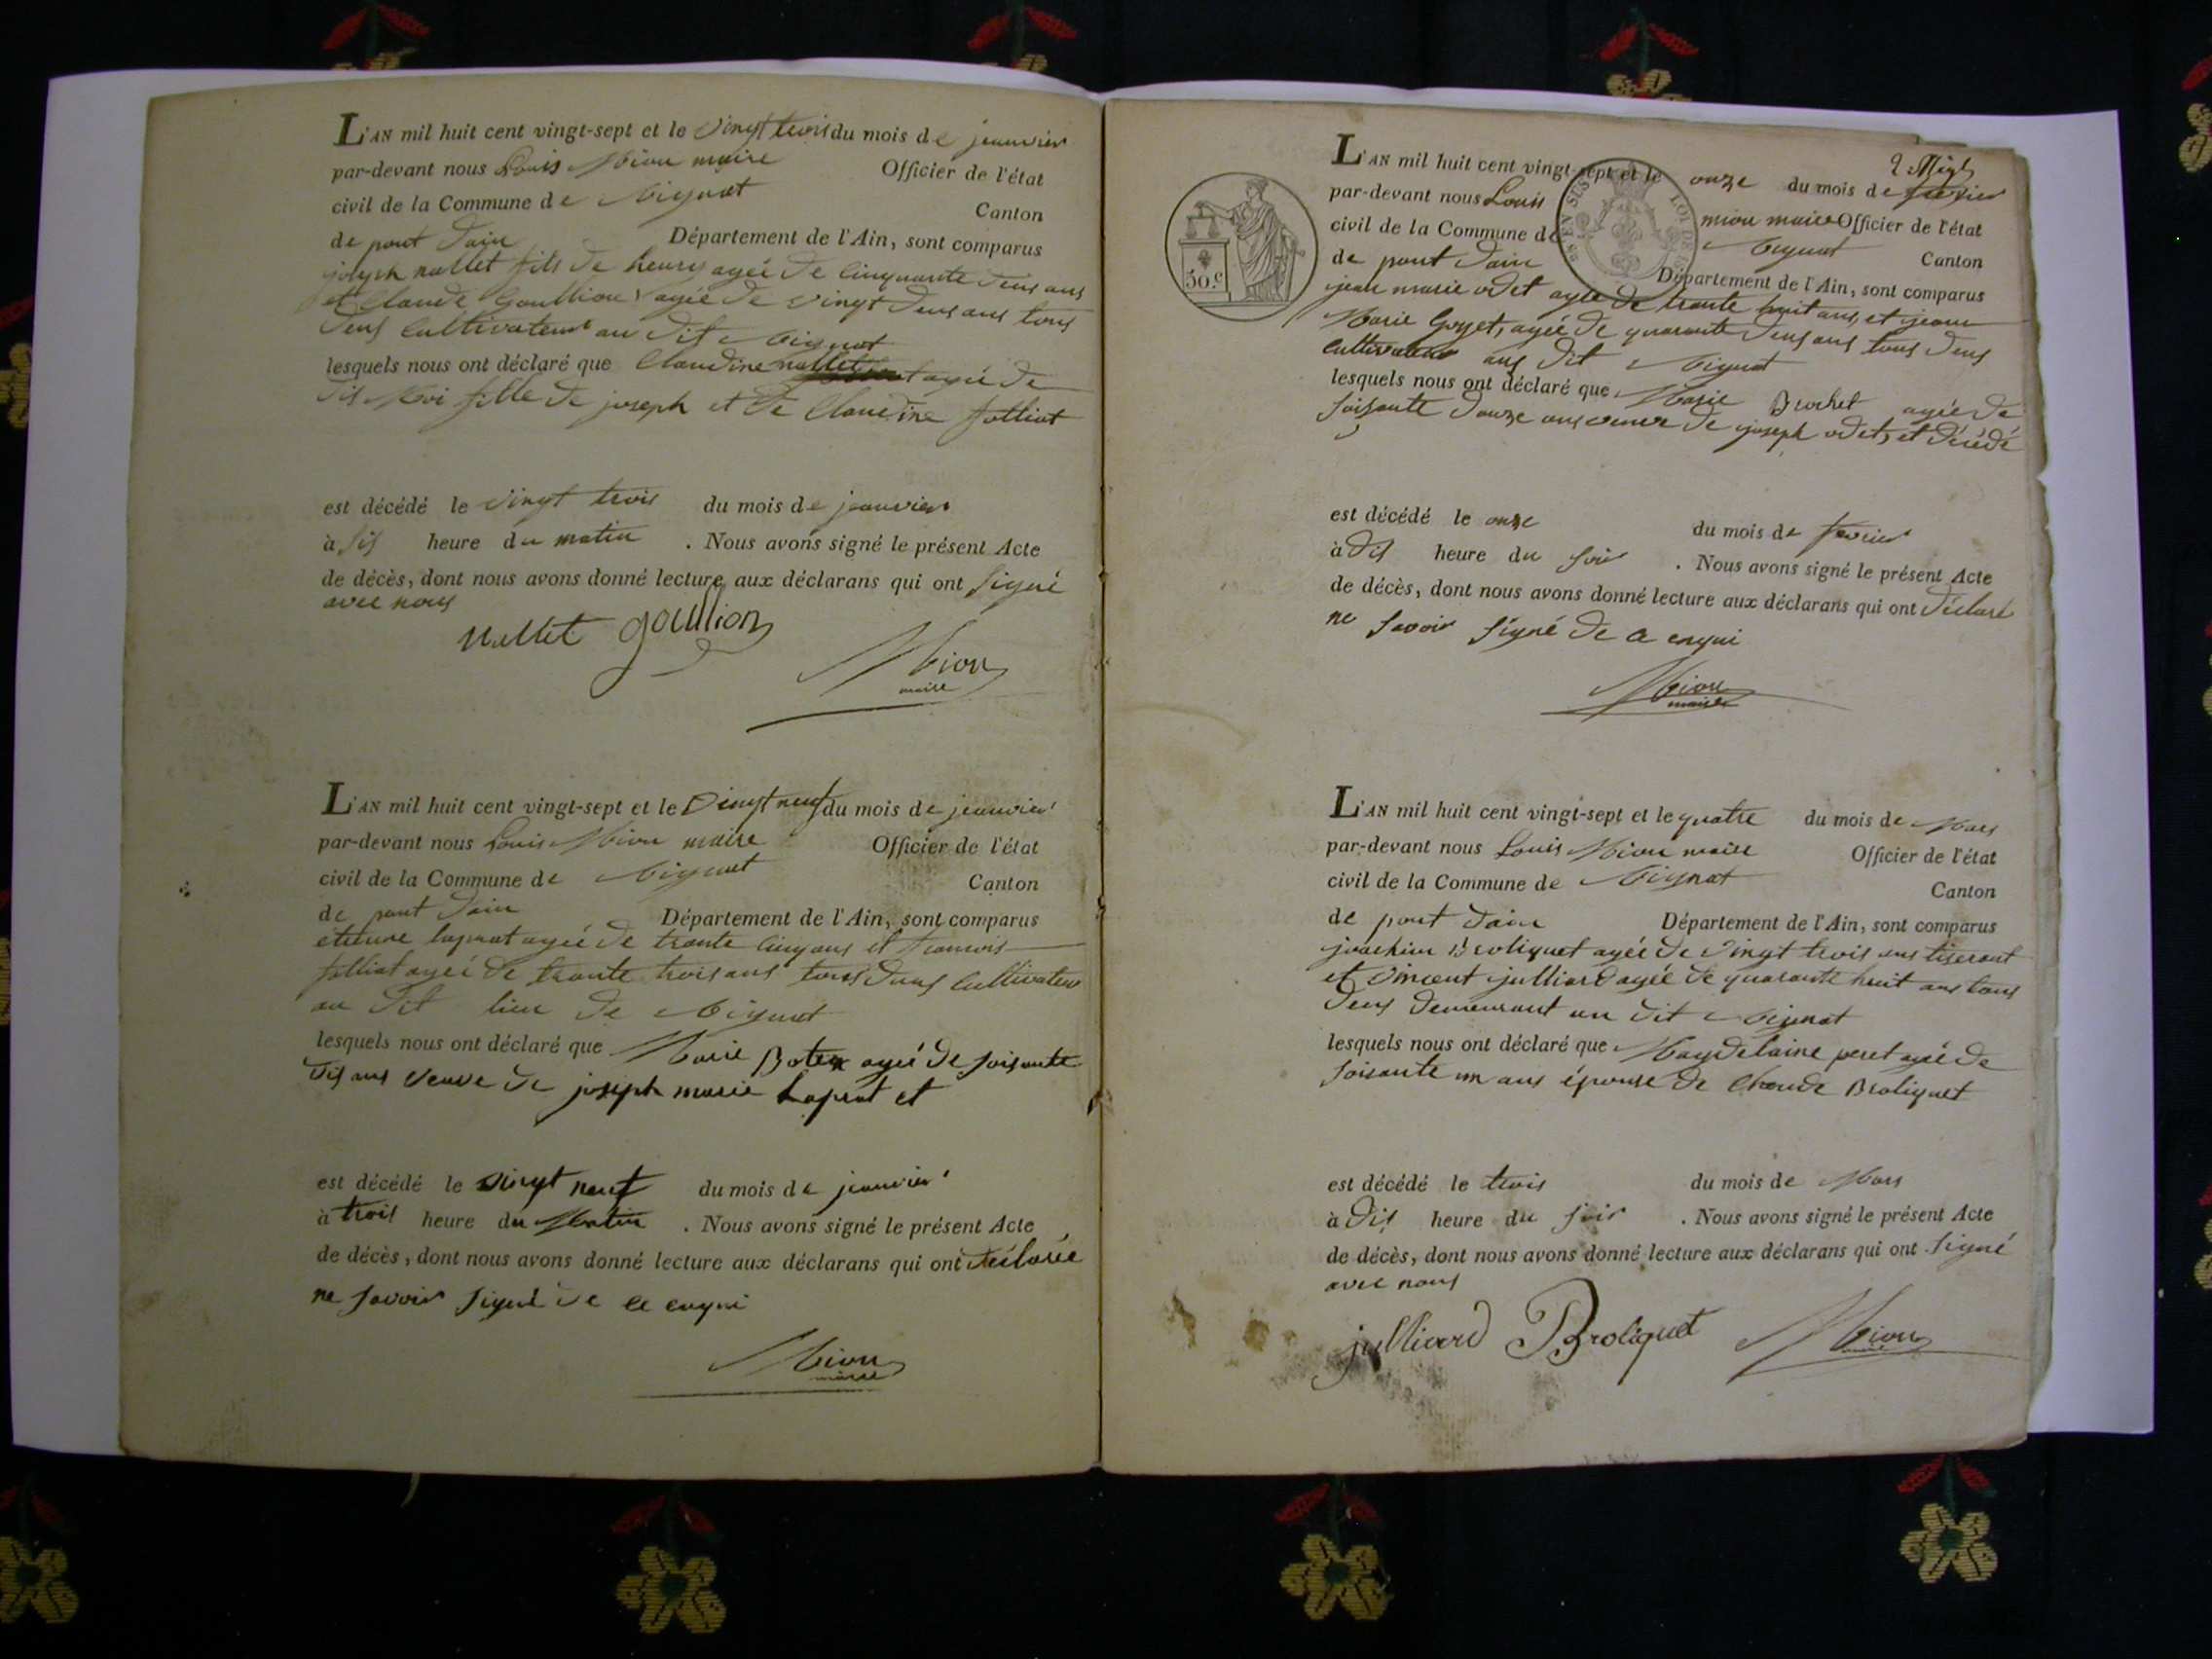 L'AN mil huit cent vingt-sept et le vingt trois du mois de jeanvier
par-devant nous Louis Mion maire Officier de l'état
civil de la Commune de Mignat Canton
de pont dain Département de l'Ain, sont comparus
joseph nallet fils de henry agée de cinquante deux ans
et Claude Goullion agée de vingt deux ans tous
deux cultivateur au dit Mignat
lesquels nous ont déclaré que Claudine nallet agée de
dix Moi fille de joseph et de Claudine folliat
est décédé le vingt trois du mois de jeanvier
à six heure du matin . Nous avons signé le présent Acte
de décès, dont nous avons donné lecture aux déclarans qui ont signé
avec nous
Nallet goullion
Mion
maire
L'AN mil huit cent vingt-sept et le vingt neuf du mois de jeanvier
par-devant nous Louis Mion maire Officier de l'état
civil de la Commune de Mignat Canton
de pont dain Département de l'Ain, sont comparus
etienne laprat agée de trante cinq ans et francois
folliat agée de trante trois ans tous deux cultivateur
au dit lieu de Mignat
lesquels nous ont déclaré que Marie agée de soisante
dix ans veuve de joseph marie Laprat et
est décédé le vingt neuf du mois de jeanvier
à trois heure du Matin . Nous avons signé le présent Acte
de décès, dont nous avons donné lecture aux déclarans qui ont déclarée
ne savoir signé de ce enqui
Mion
maire
2
L'AN mil huit cent vingt-sept et le onze du mois de fevrier
par-devant nous Louis mion maire Officier de l'état
civil de la Commune de Mignat Canton
de pont dain Département de l'Ain, sont comparus
50.c
jean marie odet agée de trante huit ans, et jean
Marie Goyet, agée de quarante deux ans tous deux
cultivateur aux dit Mignat
lesquels nous ont déclaré que Marie Brochet agée de
soisante douze ans veuve de joseph odet, et décédé
est décédé le onze du mois de fevrier
à dix heure du soir . Nous avons signé le présent Acte
de décès, dont nous avons donné lecture aux déclarans qui ont déclaré
ne savoir signé de ce enqui
Mion
maire
L'AN mil huit cent vingt-sept et le quatre du mois de Mars
par-devant nous Louis Mion maire Officier de l'état
civil de la Commune de Mignat Canton
de pont dain Département de l'Ain, sont comparus
joachim Broliquet agée de vingt trois ans tiserant
et vincent julliard agée de quarante huit ans tous
deux demeurant au dit Mignat
lesquels nous ont déclaré que Magdelaine peret agée de
soisante un ans épouse de Claude Broliquet
est décédé le trois du mois de Mars
à dix heure du soir . Nous avons signé le présent Acte
de décès, dont nous avons donné lecture aux déclarans qui ont signé
avec nous
julliard Broliquet Mion
maire